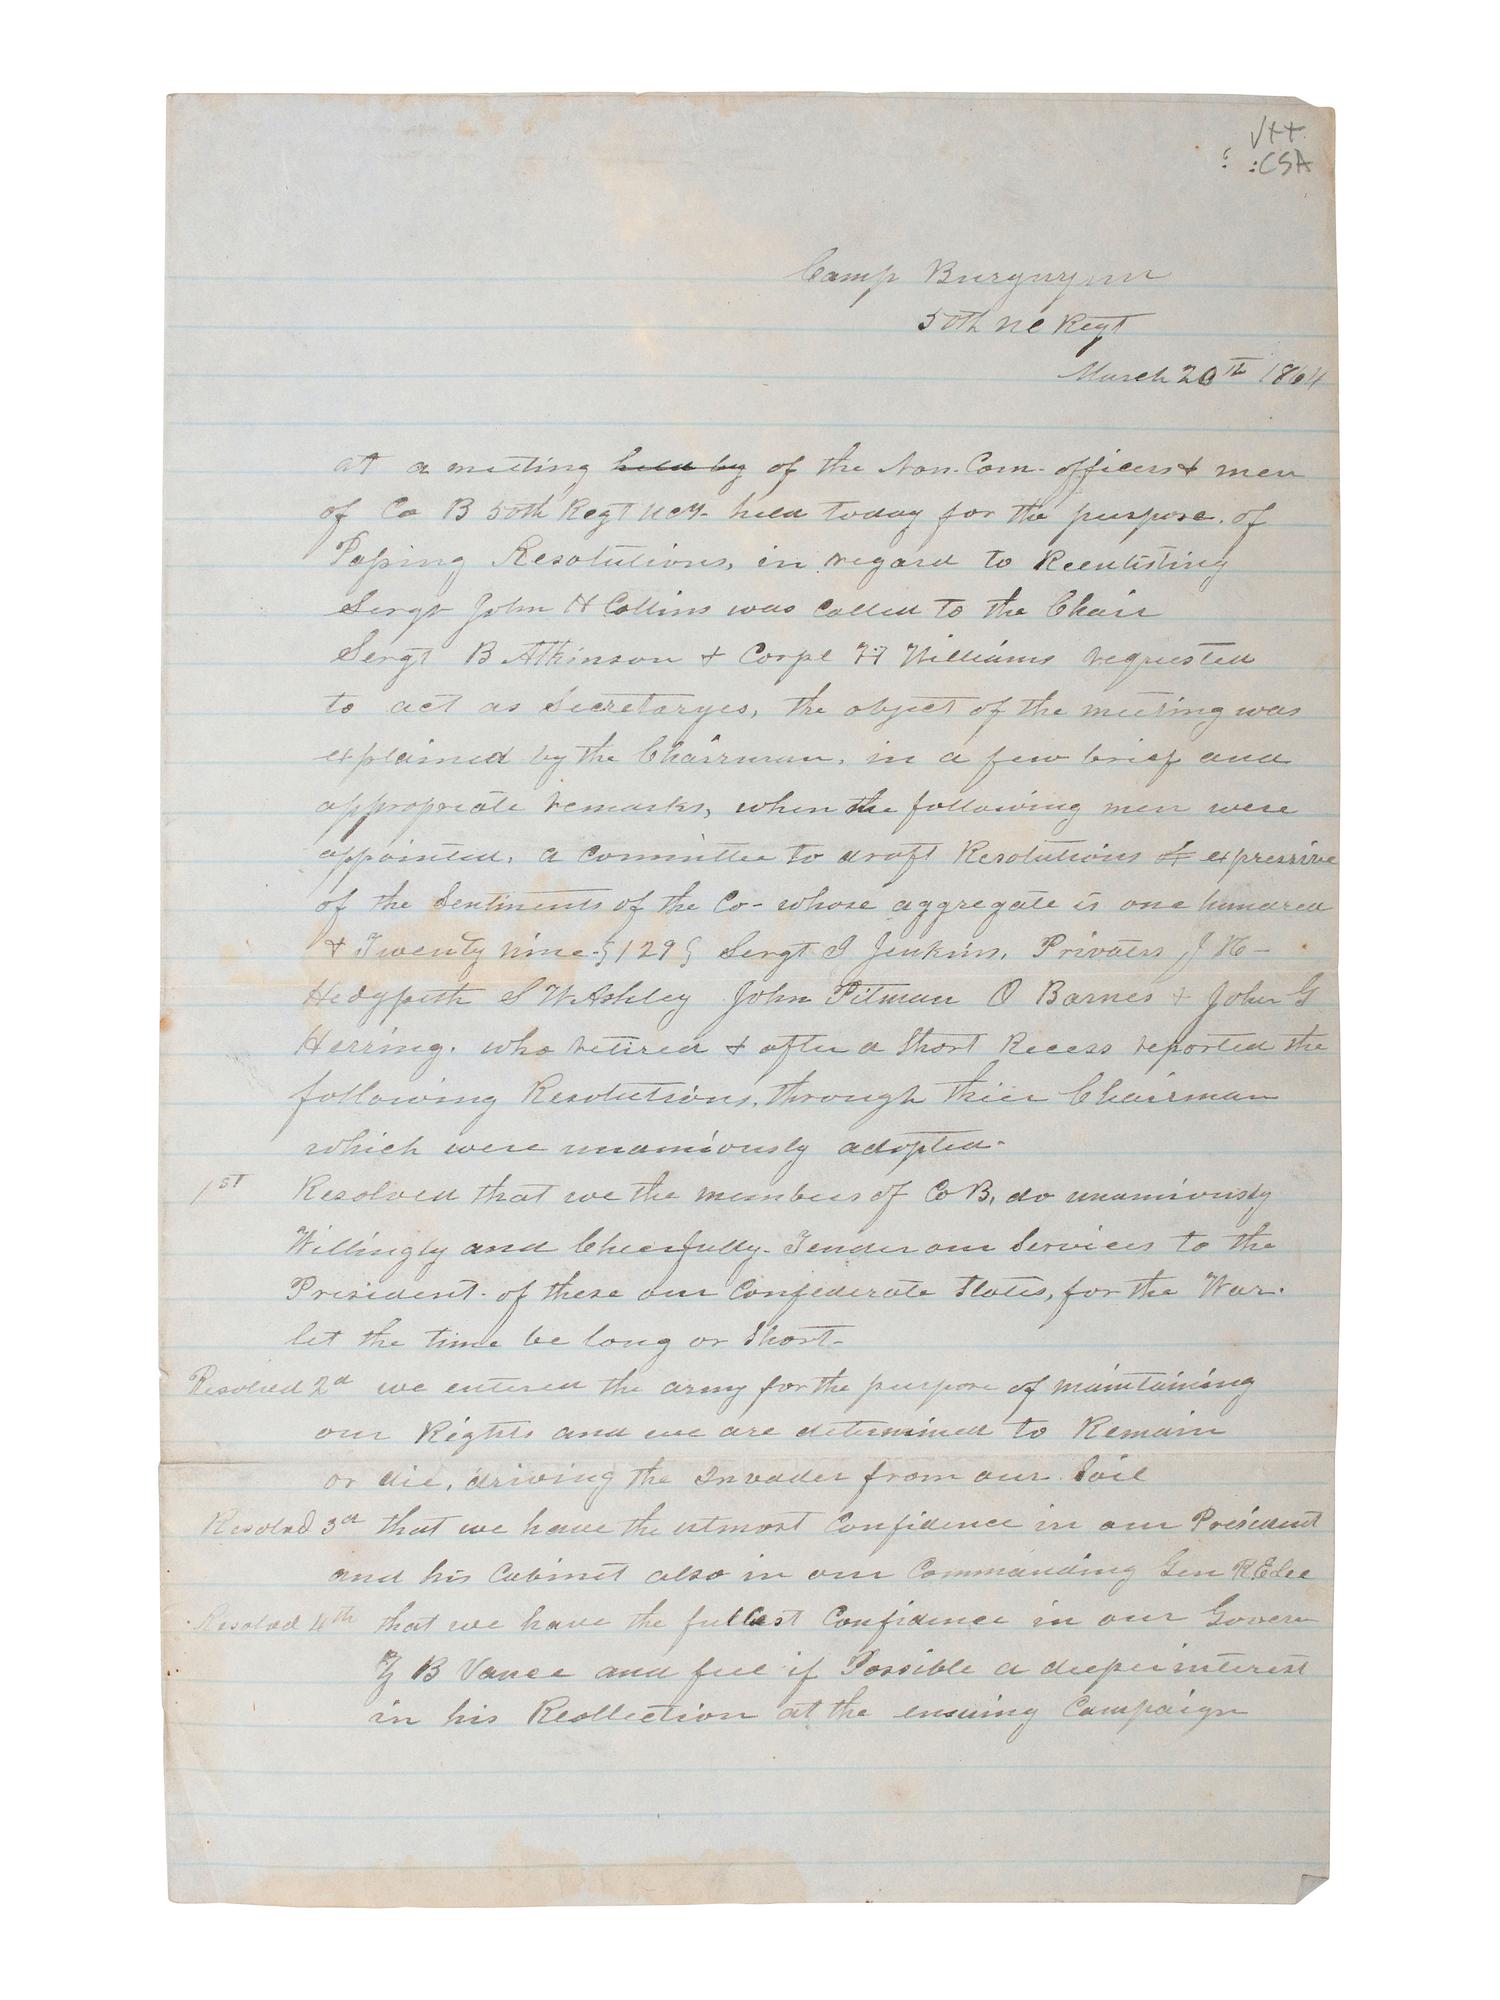 CSA
Camp Burgwynn
50th NC Regt
March 20th 1864
at a meeting held by of the Non. Com. officers & men
of Co B 50th Regt NCT- held today for the purpose. of
Passing Resolutions, in regard to Reenlisting
Sergt John H Collins was Called to the Chair
Sergt B Atkinson & Corpl Williams requested
to act as Secretaryes, the object of the meeting was
explained by the Chairman, in a few brief and
appropriate remarks, when the following men were
appointed, a Committee to draft Resolutions of expressive
of the Sentiments of the Co- whose aggregate is one hundred
& Twenty nine-{129} Sergt J Jenkins, Privates J H-
Hedgpeth S W Ashley John Pitman O Barnes & John G
Herring. who retired & after a Short Recess reported the
following Resolutions, through thier Chairman
which were unamiously adopted-
1st Resolved that we the members of Co B, do unamiously
Willingly and Cheerfully- Tender our Services to the
President- of these our Confederate States, for the War.
let the time be long or Short-
Resolved 2d we entered the army for the purpose of maintaining
our Rights and we are determined to Remain
or die, driving the Invader from our Soil
Resolved 3d that we have the utmost Confidence in our President
and his Cabinet also in our Commanding Gen R E Lee
Resolved 4th that we have the fullest Confidence in our Govern
Z B Vance and feel if Possible a deeper interest
in his Reollection at the ensuing Campaign